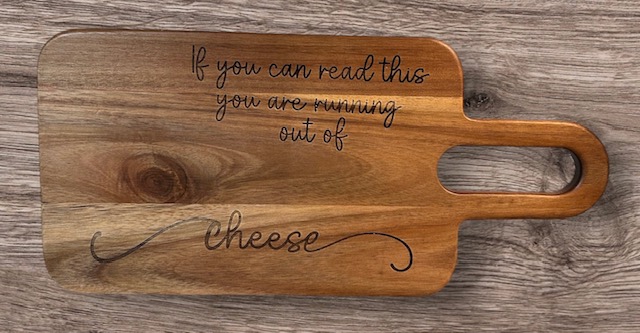 If you can read this
you are running
out of
cheese